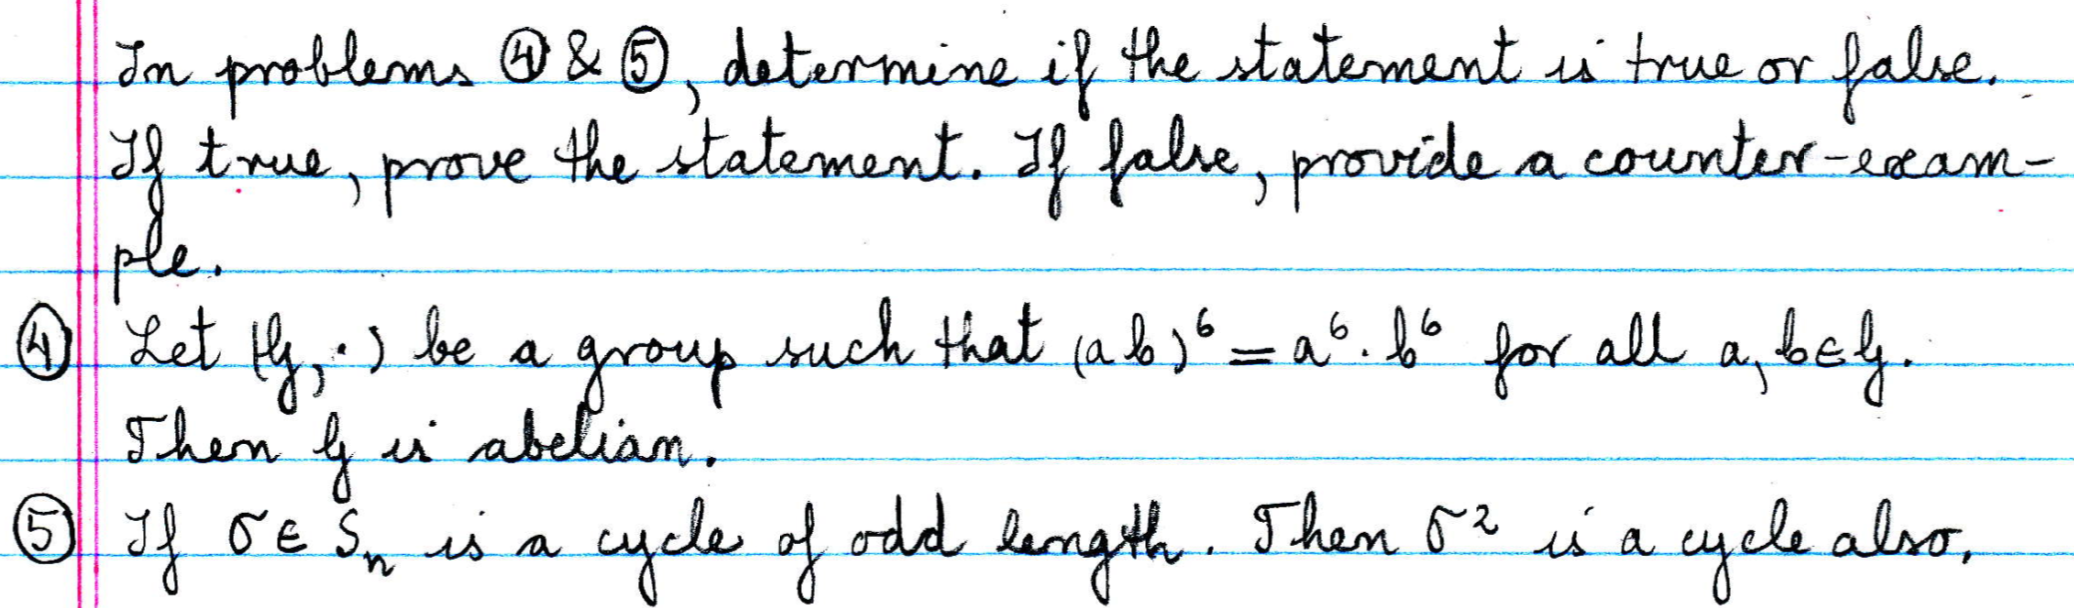 In problems ④ & ⑤, determine if the statement is true or false.
If true, prove the statement. If false, provide a counter-exam-
ple.
④ Let (G, ·) be a group such that (ab)⁶ = a⁶·b⁶ for all a, b ∈ G.
Then G is abelian.
⑤ If σ ∈ Sₙ is a cycle of odd length. Then σ² is a cycle also.